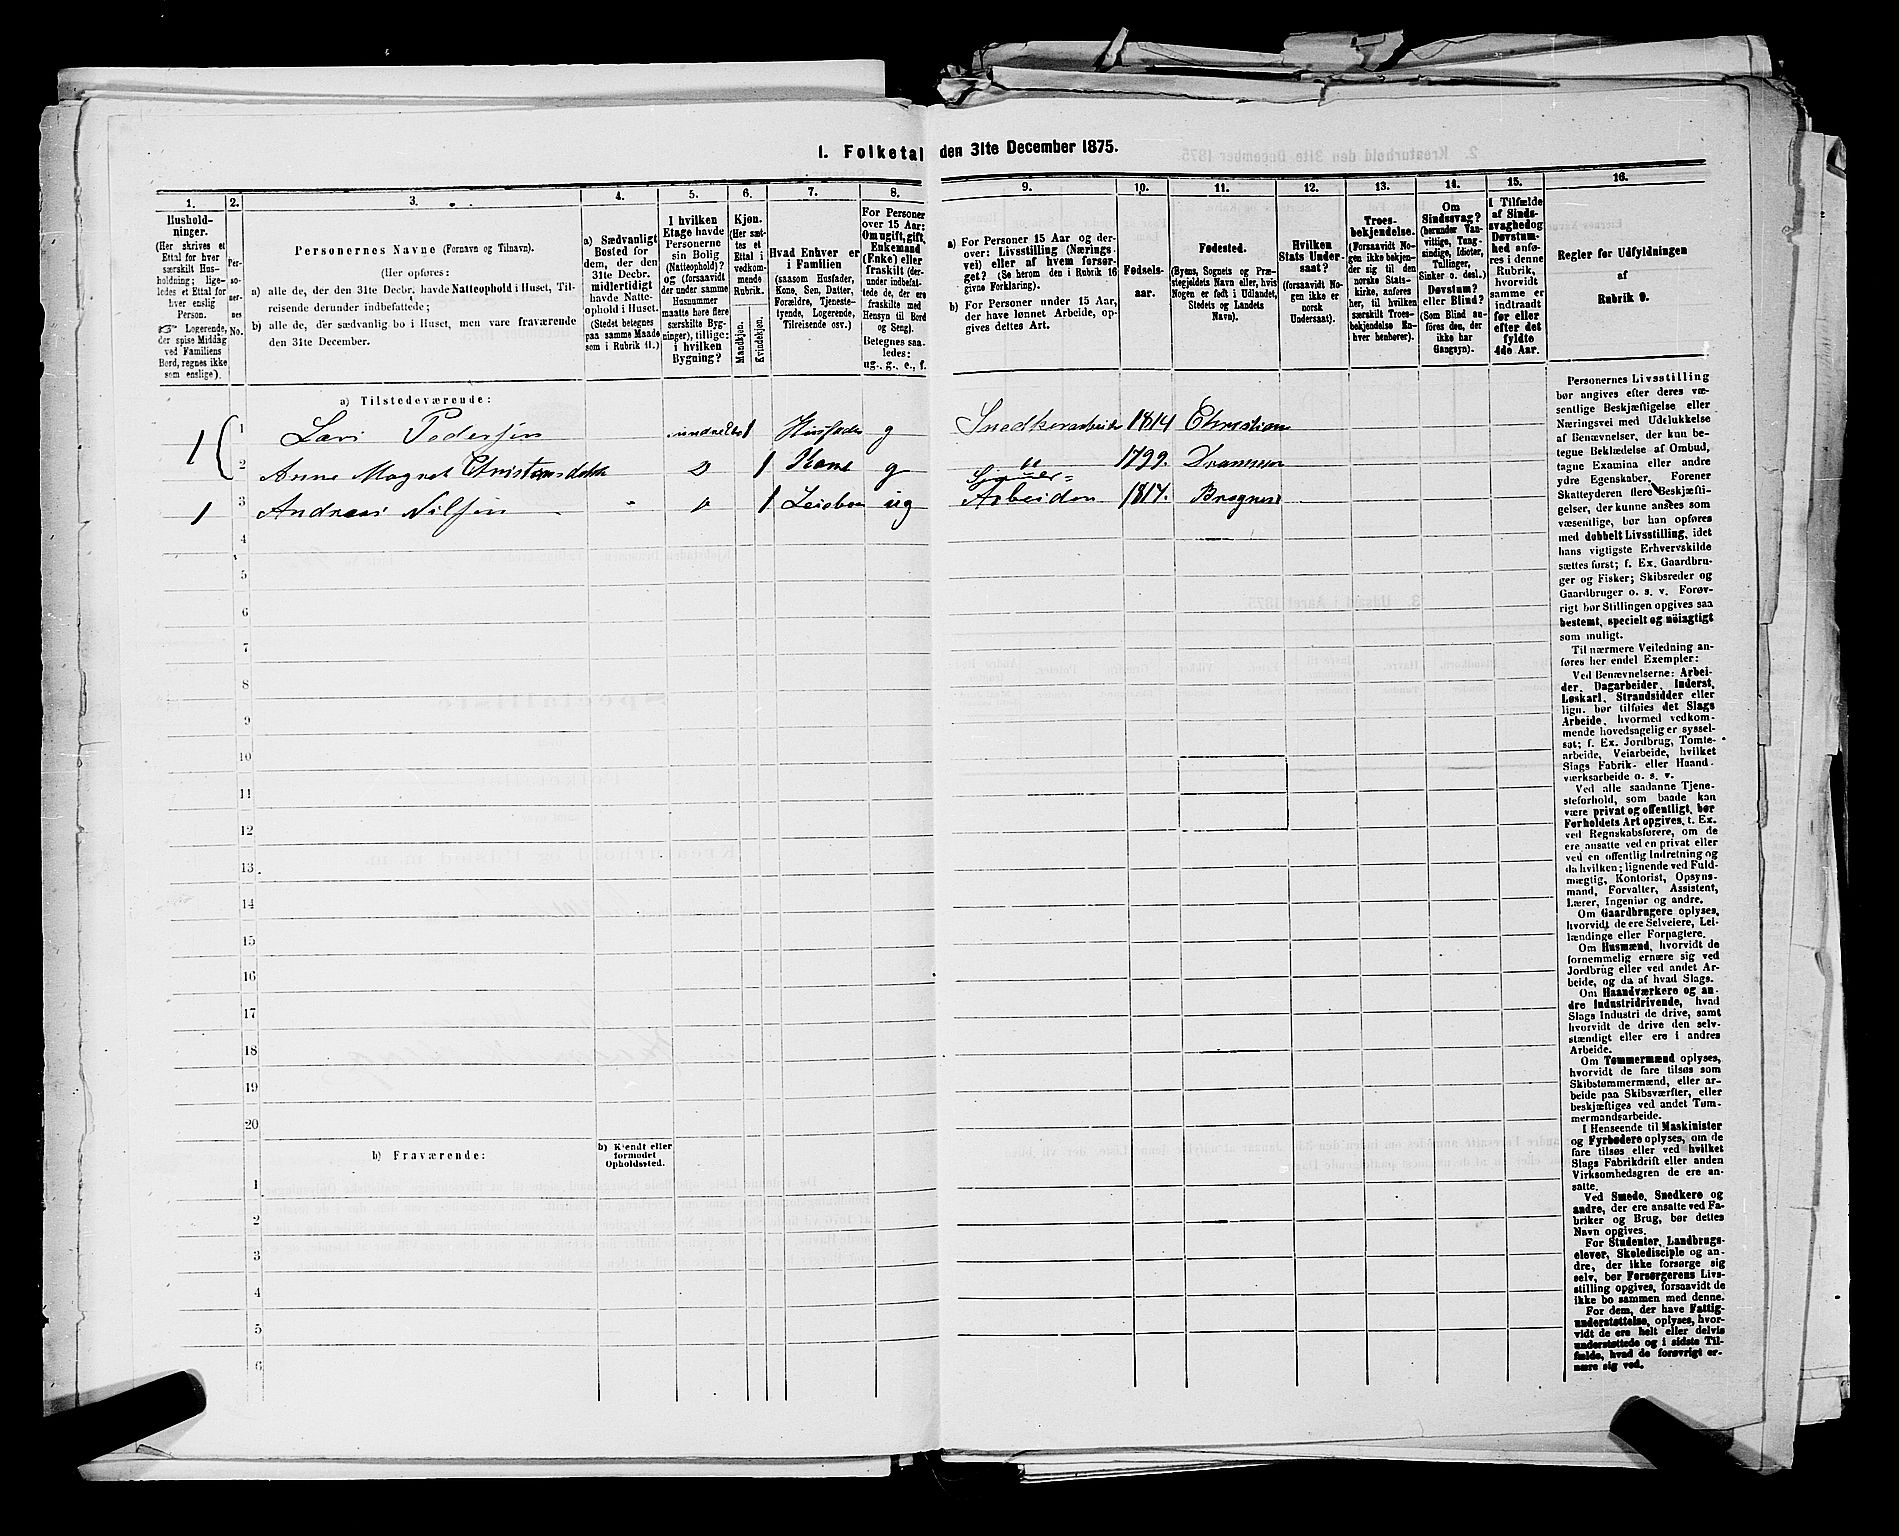 1. Folketal den 31te December 1875.
1. 2. 3. 4. 5. 6. 7. 8. 9. 10. 11. 12. 13. 14. 15. 16.
Hushold-
ninger.
(Her skrives et
Ettal for hver
særskilt Hus-
holdning; lige-
ledes et Ettal for
hver enslig
Person.
☞ Logerende,
der spise Middag
ved Familiens
Bord, regnes ikke
som enslige).
Per-
so-
ner-
nes
No.
Personernes Navne (Fornavn og Tilnavn).
(Her opføres:
a) alle de, der den 31te Decbr. havde Natteophold i Huset, Til-
reisende derunder indbefattede;
b) alle de, der sædvanlig bo i Huset, men vare fraværende
den 31te December.
a) Sædvanligt
Bosted for
dem, der den
31te Decbr.
midlertidigt
havde Natte-
ophold i Huset.
(Stedet betegnes
paa samme Maade
som i Rubrik 11.)
I hvilken
Etage havde
Personerne
sin Bolig
(Natteophold)?
(forsaavidt
der under samme
Husnummer
maatte høre flere
særskilte Byg-
ninger), tillige:
i hvilken
Bygning?
Kjøn.
(Her sæt-
tes et
Ettal i
vedkom-
mende
Rubrik.
Mandkjøn.
Kvindekjøn.
Hvad Enhver er
i Familien
(saasom Husfader,
Kone, Søn, Datter,
Forældre, Tjeneste-
tyende, Logerende,
Tilreisende osv.)
For Personer
over 15 Aar:
Om ugift, gift,
Enkemand
(Enke) eller
fraskilt (der-
under indbefat-
tede de, der ere
fraskilte med
Hensyn til Bord
og Seng).
Betegnes saa-
ledes:
ug., g., e., f.
a) For Personer 15 Aar og der-
over: Livsstilling (Nærings-
vei) eller af hvem forsør-
get? (Se herom den i Rubrik 16
givne Forklaring).
b) For Personer under 15 Aar,
der have lønnet Arbeide, op-
gives dettes Art.
Fødsels-
aar.
Fødested.
(Byens, Sognets og Præ-
stegjeldets Navn eller, hvis
Nogen er født i Udlandet,
Stedets og Landets
Navn).
Hvilken
Stats Under-
saat?
(forsaavidt No-
gen ikke er
norsk
Undersaat).
Troes-
bekjendelse.
(Forsaavidt No-
gen ikke bekjen-
der sig til den
norske Stats-
kirke, anføres
her, til hvilken
særskilt Troes-
bekjendelse En-
hver henhører).
Om
Sindssvag?
(herunder Van-
vittige, Tung-
sindige, Idioter,
Tullinger,
Sinker o. desl.)
Døvstum?
eller Blind?
(Som Blind an-
føres den, der
ikke har
Gangsyn).
I Tilfælde
af Sinds-
svaghed og
Døvstum-
hed anfø-
res i denne
Rubrik,
hvorvidt
samme er
indtraadt
før eller
efter det
fyldte
4de Aar.
Regler for Udfyldningen
af
Rubrik 9.
a) Tilstedeværende:
1 1 Lars Pedersen 1 Husfader g Snedkerarbeide 1814 Christian
2 Anne Margret 1 Kone g " 1799. Drammen
1 3 Andreas Nilsen 1 ug Arbeider 1817. Bragnes
4
5
6
7
8
9
10
11
12
13
14
15
16
17
18
19
20
b) Fraværende:
b) Kjendt eller
formodet
Opholdssted.
1
2
3
4
5
6
Personernes Livsstilling
bør angives efter deres væ-
sentlige Beskjæftigelse eller
Næringsvei med Udelukkelse
af Benævnelser, der kun be-
tegne Beklædelse af Ombud,
tagne Examina eller andre
ydre Egenskaber. Forener
Skatteyderen flere Beskjæfti-
gelser, der kunne ansees som
væsentlige, bør han opføres
med dobbelt Livsstilling, idet
hans vigtigste Erhvervskilde
sættes først; f. Ex. Gaardbru-
ger og Fisker; Skibsreder og
Gaardbruger o. s. v. Forøv-
rigt bør Stillingen opgives saa
bestemt, specielt og nöiagtigt
som muligt.
Til nærmere Veiledning an-
føres her endel Exempler:
Ved Benævnelserne: Arbei-
der, Dagarbeider, Inderst,
Løskarl, Strandsidder eller
lign. bør tilføies det Slags
Arbeide, hvormed vedkom-
mende hovedsagelig er syssel-
sat; f. Ex. Jordbrug, Tomte-
arbeide, Veiarbeide, hvilket
Slags Fabrik- eller Haand-
værksarbeide o. s. v.
Ved alle saadanne Tjene-
steforhold, som baade kan
være privat og offentligt, bør
Forholdets Art opgives, t. Ex.
ved Regnskabsførere, om de
ere ansatte ved en privat eller
ved en offentlig Indretning og
da hvilken; lignende ved Fuld-
mægtig, Kontorist, Opsyns-
mand, Forvalter, Assistent,
Lærer, Ingeniør og andre.
Om Gaardbrugere oplyses,
hvorvidt de ere Selveiere, Lei-
lændinge eller Forpagtere.
Om Husmænd, hvorvidt de
fornemmelig ernære sig ved
Jordbrug eller ved andet Ar-
beide, og da af hvad Slags.
Om Haandværkere og an-
dre Industridrivende, hvad
Slags Industri de drive, samt
hvorvidt de drive den selv-
stændigt eller ere i andres
Arbeide.
Om Tømmermænd oplyses,
hvorvidt de fare tilsøs som
Skibstømmermænd, eller ar-
beide paa Skibsværfter, eller
beskjæftiges ved andet Tøm-
mermandsarbeide.
I Henseende til Maskinister
og Fyrbødere oplyses, om de
fare tilsøs eller ved hvilket
Slags Fabrikdrift eller anden
Virksomhedsgren de ere an-
satte.
Ved Smede, Snedkere og
andre, der ere ansatte ved Fa-
briker og Brug, bør dettes
Navn opgives.
For Studenter, Landbrugs-
elever, Skoledisciple og an-
dre, der ikke forsørge sig
selv, bør Forsørgerens Livs-
stilling opgives, forsaavidt de
ikke bo sammen med denne.
For dem, der have Fattig-
understøttelse, oplyses, hvor-
vidt de ere helt eller delvis
understøttede og i sidste Til-
fælde, hvad de forøvrigt er-
nære sig ved.